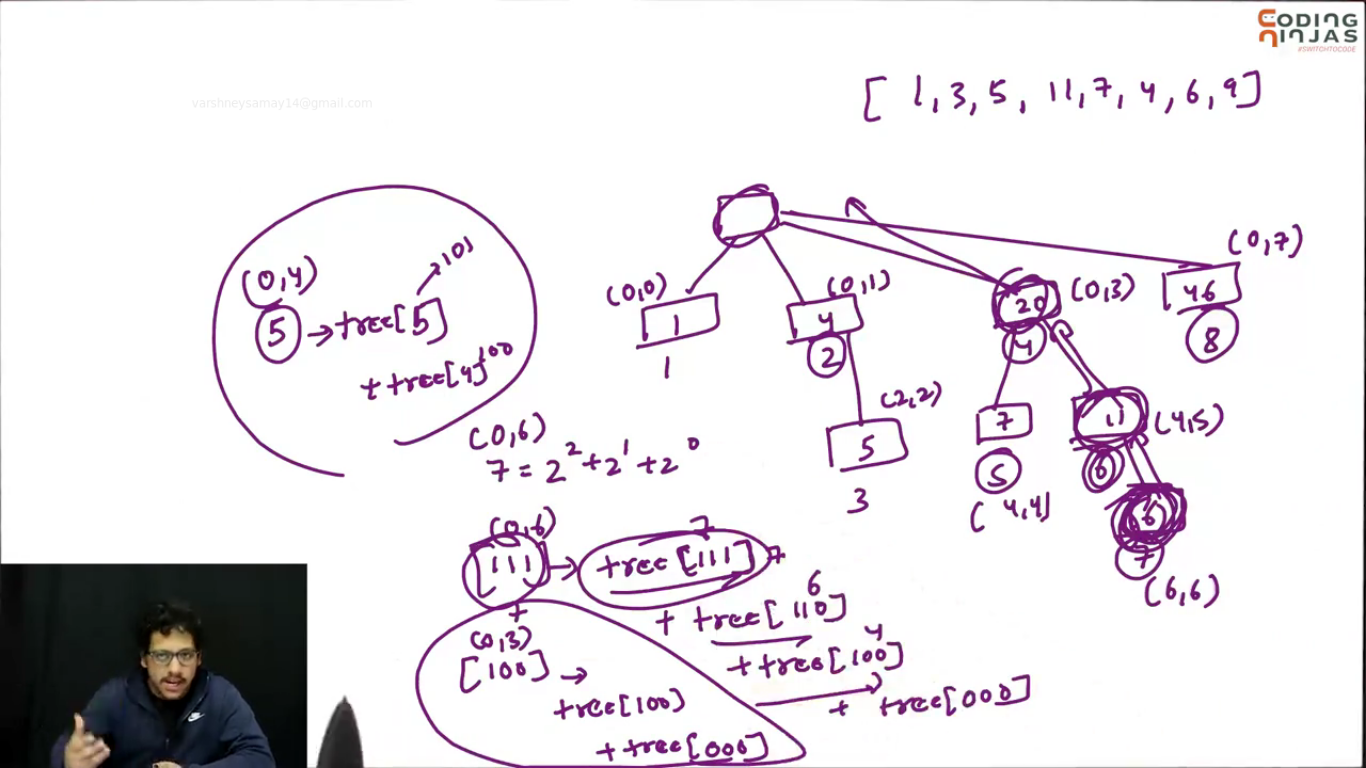 CODING
NINJAS
#SWITCHTOCODE
varshneysamay14@gmail.com
[ 1, 3, 5, 11, 7, 4, 6, 9 ]
(0,4)
5 → tree[5] → 101
+ tree[4] 100
(0,0)
1
1
(0,1)
4
2
(2,2)
5
3
(0,3)
20
4
(0,7)
46
8
7
5
(4,4)
11
(4,5)
6
6
7
(6,6)
(0,6)
7 = 2^2 + 2^1 + 2^0
(0,6)
[111] → tree[111] 7
7
+ tree[110] 6
+ tree[100] 4
+ tree[000]
+
(0,3)
[100] →
tree[100]
+ tree[000]